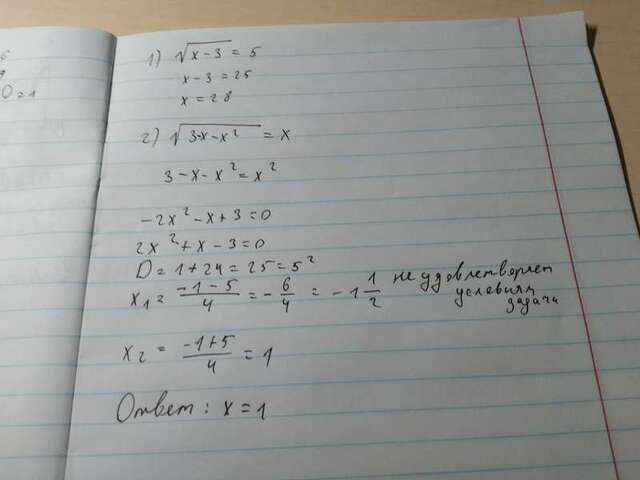 1) √(x-3) = 5
x-3 = 25
x = 28
2) √(3-x-x²) = x
3-x-x² = x²
-2x² - x + 3 = 0
2x² + x - 3 = 0
D = 1 + 24 = 25 = 5²
x₁ = (-1-5)/4 = -6/4 = -1 1/2 не удовлетворяет
условиям
задачи
x₂ = (-1+5)/4 = 1
Ответ: x = 1
0=1